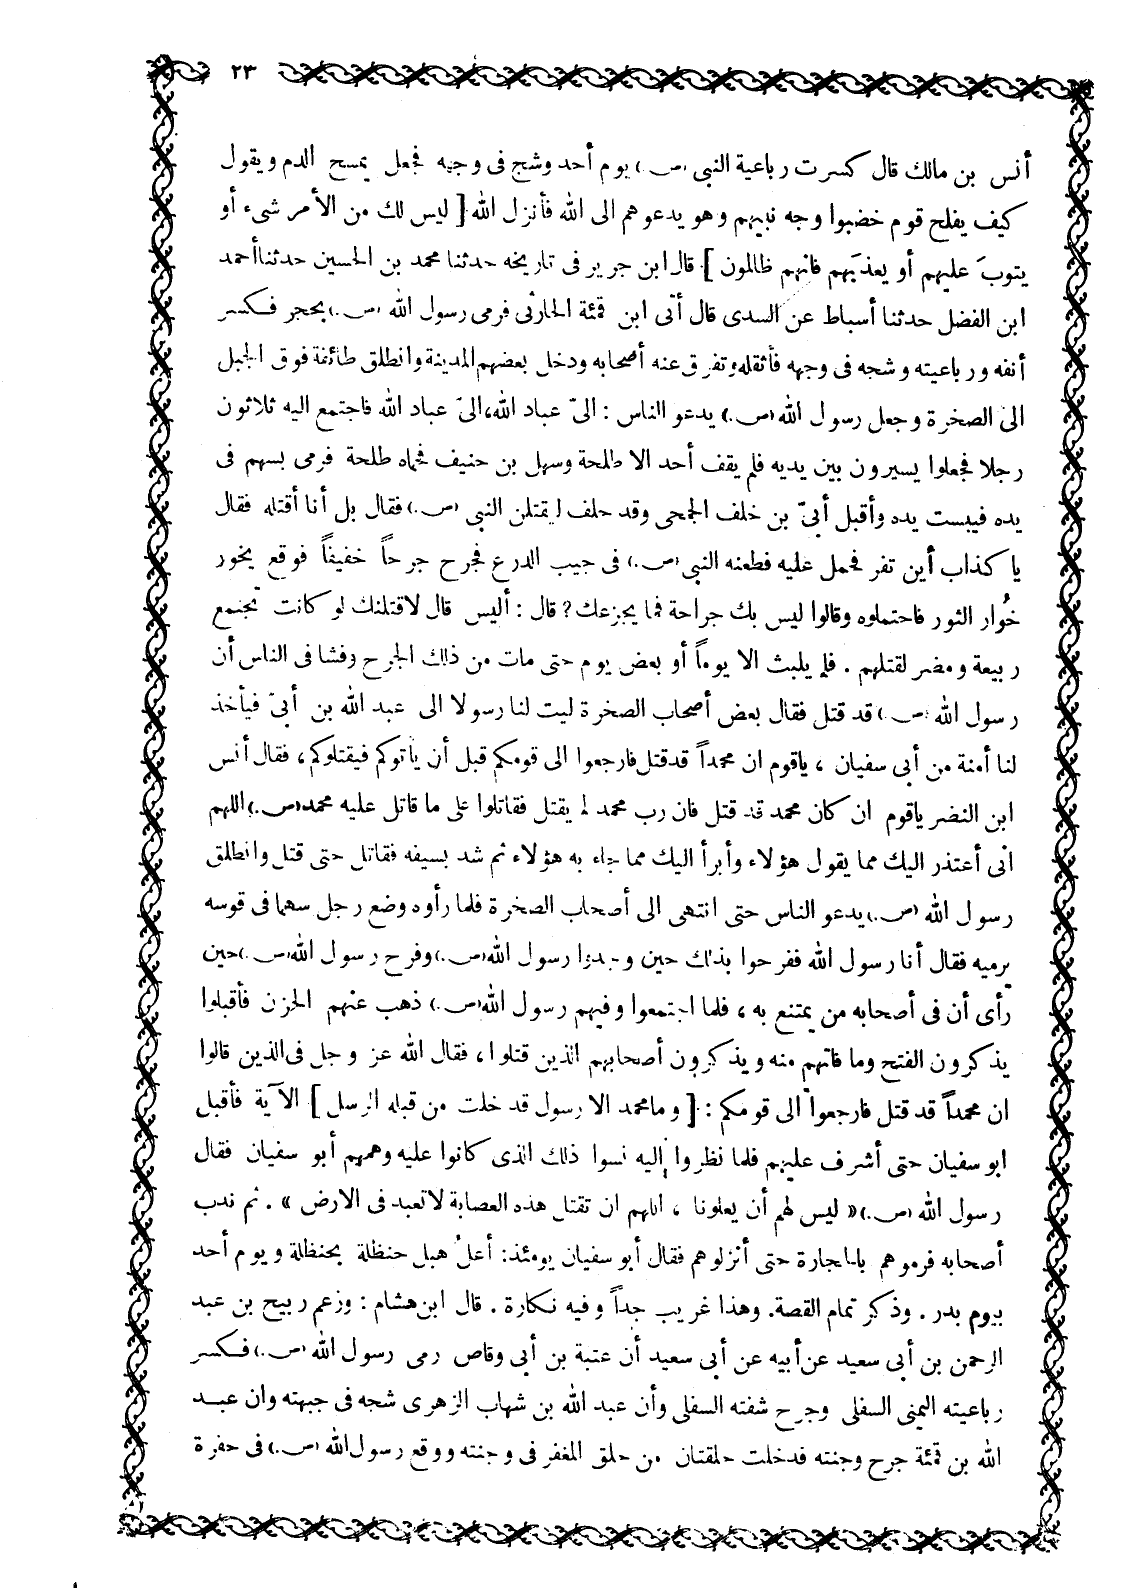 ٢٣
أنس بن مالك قال كسرت رباعية النبى (ص.) يوم أحد وشج فى وجهه فجعل يمسح الدم ويقول
كيف يفلح قوم خضبوا وجه نبيهم وهو يدعوهم الى الله فأنزل الله [ ليس لك من الأمر شىء أو
يتوبَ عليهم أو يعذبَهم فانهم ظالمون ] قال ابن جرير فى تاريخه حدثنا محمد بن الحسين حدثنا أحمد
ابن الفضل حدثنا أسباط عن السدى قال أتى ابن قمئة الحارثى فرمى رسول الله (ص.) بحجر فكسر
أنفه ورباعيته وشجه فى وجهه فأثقله وتفرق عنه أصحابه ودخل بعضهم المدينة وانطلق طائفة فوق الجبل
الى الصخرة وجعل رسول الله (ص.) يدعو الناس : الىّ عباد الله، الىّ عباد الله فاجتمع اليه ثلاثون
رجلا فجعلوا يسيرون بين يديه فلم يقف أحد الا طلحة وسهل بن حنيف فحماه طلحة فرمى بسهم فى
يده فيبست يده وأقبل أبىّ بن خلف الجمحى وقد حلف ليقتلن النبى (ص.) فقال بل أنا أقتله فقال
يا كذاب أين تفر فحمل عليه فطعنه النبى (ص.) فى جيب الدرع فجرح جرحاً خفيفاً فوقع يخور
خُوار الثور فاحتملوه وقالوا ليس بك جراحة فما يجزعك؟ قال : أليس قال لاقتلنك لو كانت تجتمع
ربيعة ومضر لقتلهم . فلم يلبث الا يوماً أو بعض يوم حتى مات من ذلك الجرح وفشا فى الناس أن
رسول الله (ص.) قد قتل فقال بعض أصحاب الصخرة ليت لنا رسولا الى عبد الله بن أبىّ فيأخذ
لنا أمنة من أبى سفيان ، ياقوم ان محمداً قد قتل فارجعوا الى قومكم قبل أن يأتوكم فيقتلوكم، فقال أنس
ابن النضر ياقوم ان كان محمد قد قتل فان رب محمد لم يقتل فقاتلوا على ما قاتل عليه محمد (ص.) اللهم
انى أعتذر اليك مما يقول هؤلاء وأبرأ اليك مما جاء به هؤلاء ثم شد بسيفه فقاتل حتى قتل وانطلق
رسول الله (ص.) يدعو الناس حتى انتهى الى أصحاب الصخرة فلما رأوه وضع رجل سهما فى قوسه
يرميه فقال أنا رسول الله ففرحوا بذلك حين وجدوا رسول الله (ص.) وفرح رسول الله (ص.) حين
رأى أن فى أصحابه من يمتنع به ، فلما اجتمعوا وفيهم رسول الله (ص.) ذهب عنهم الحزن فأقبلوا
يذكرون الفتح وما فاتهم منه ويذكرون أصحابهم الذين قتلوا ، فقال الله عز وجل فى الذين قالوا
ان محمداً قد قتل فارجعوا الى قومكم : [ وما محمد الا رسول قد خلت من قبله الرسل ] الآية فأقبل
ابو سفيان حتى أشرف عليهم فلما نظروا إليه نسوا ذلك الذى كانوا عليه وهمهم أبو سفيان فقال
رسول الله (ص.) « ليس لهم أن يعلونا ، اللهم ان تقتل هذه العصابة لا تعبد فى الارض » . ثم ندب
أصحابه فرموهم بالحجارة حتى أنزلوهم فقال أبو سفيان يومئذ: أعلُ هبل حنظلة بحنظلة ويوم أحد
بيوم بدر . وذكر تمام القصة. وهذا غريب جداً وفيه نكارة . قال ابن هشام : وزعم ربيح بن عبد
الرحمن بن أبى سعيد عن أبيه عن أبى سعيد أن عتبة بن أبى وقاص رمى رسول الله (ص.) فكسر
رباعيته اليمنى السفلى وجرح شفته السفلى وأن عبد الله بن شهاب الزهرى شجه فى جبهته وان عبد
الله بن قمئة جرح وجنته فدخلت حلقتان من حلق المغفر فى وجنته ووقع رسول الله (ص.) فى حفرة